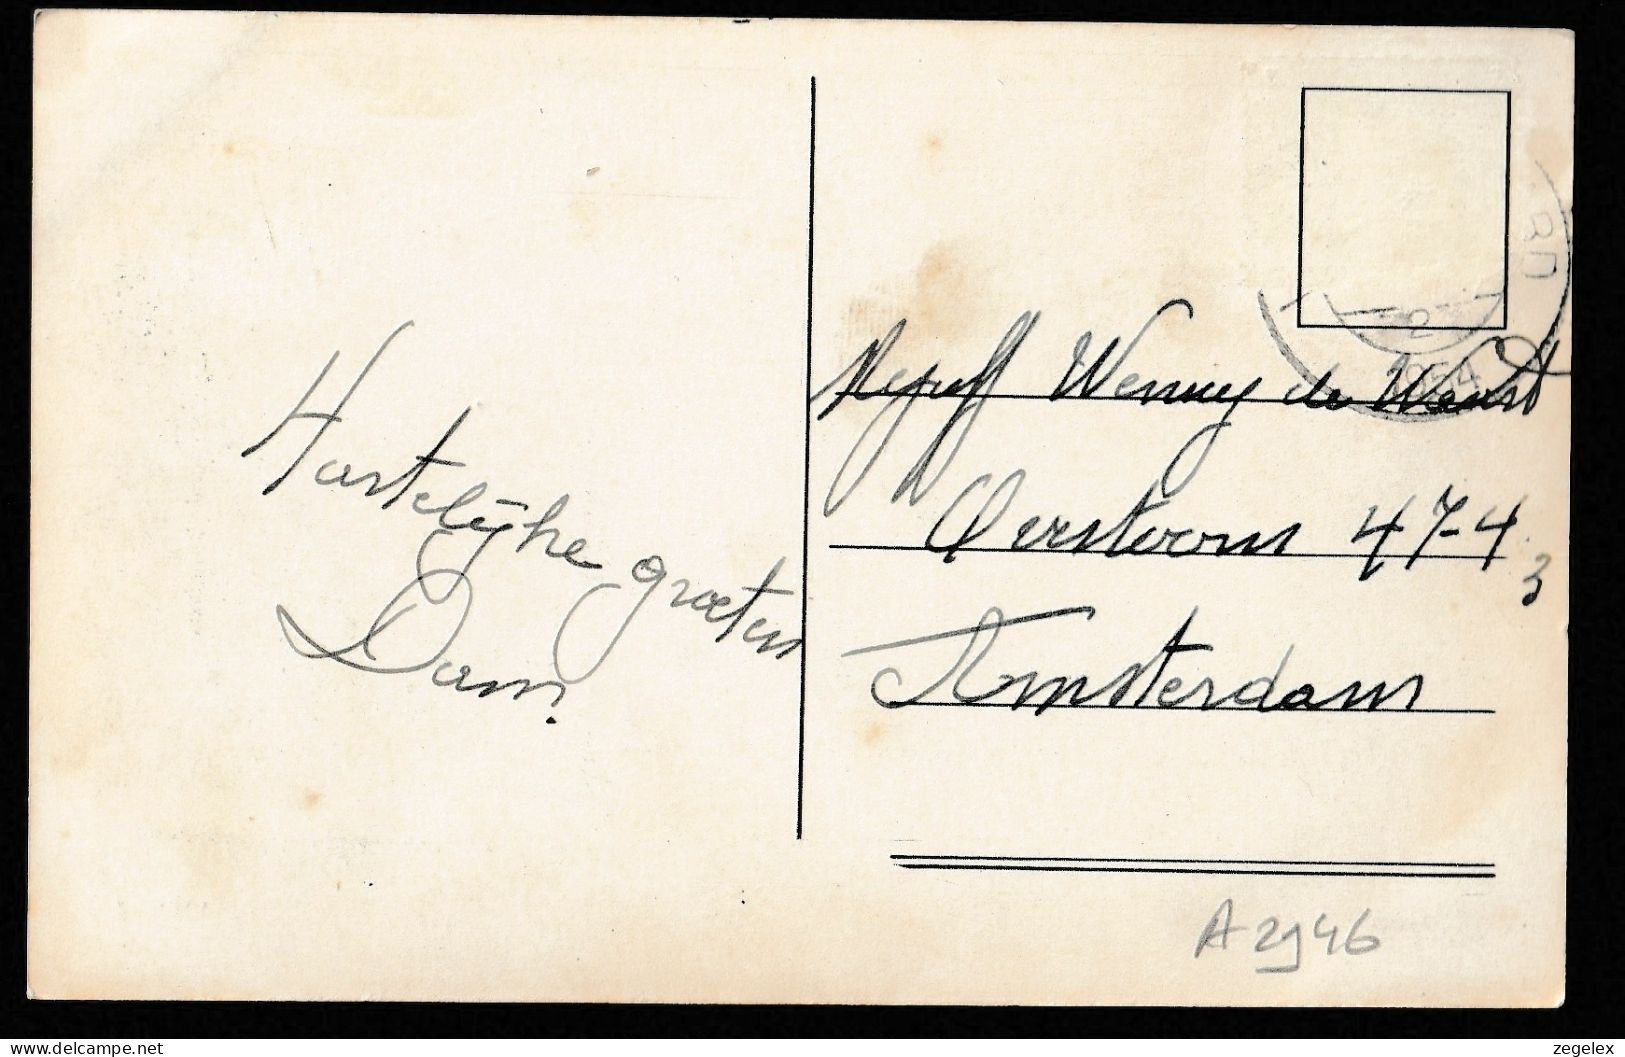 Hartelijke groeten
Dam.
Mejuff Wenny de Waard
Overtoom 47-4
3
Amsterdam
2
1954
A 2946
delcampe.net
zegelex